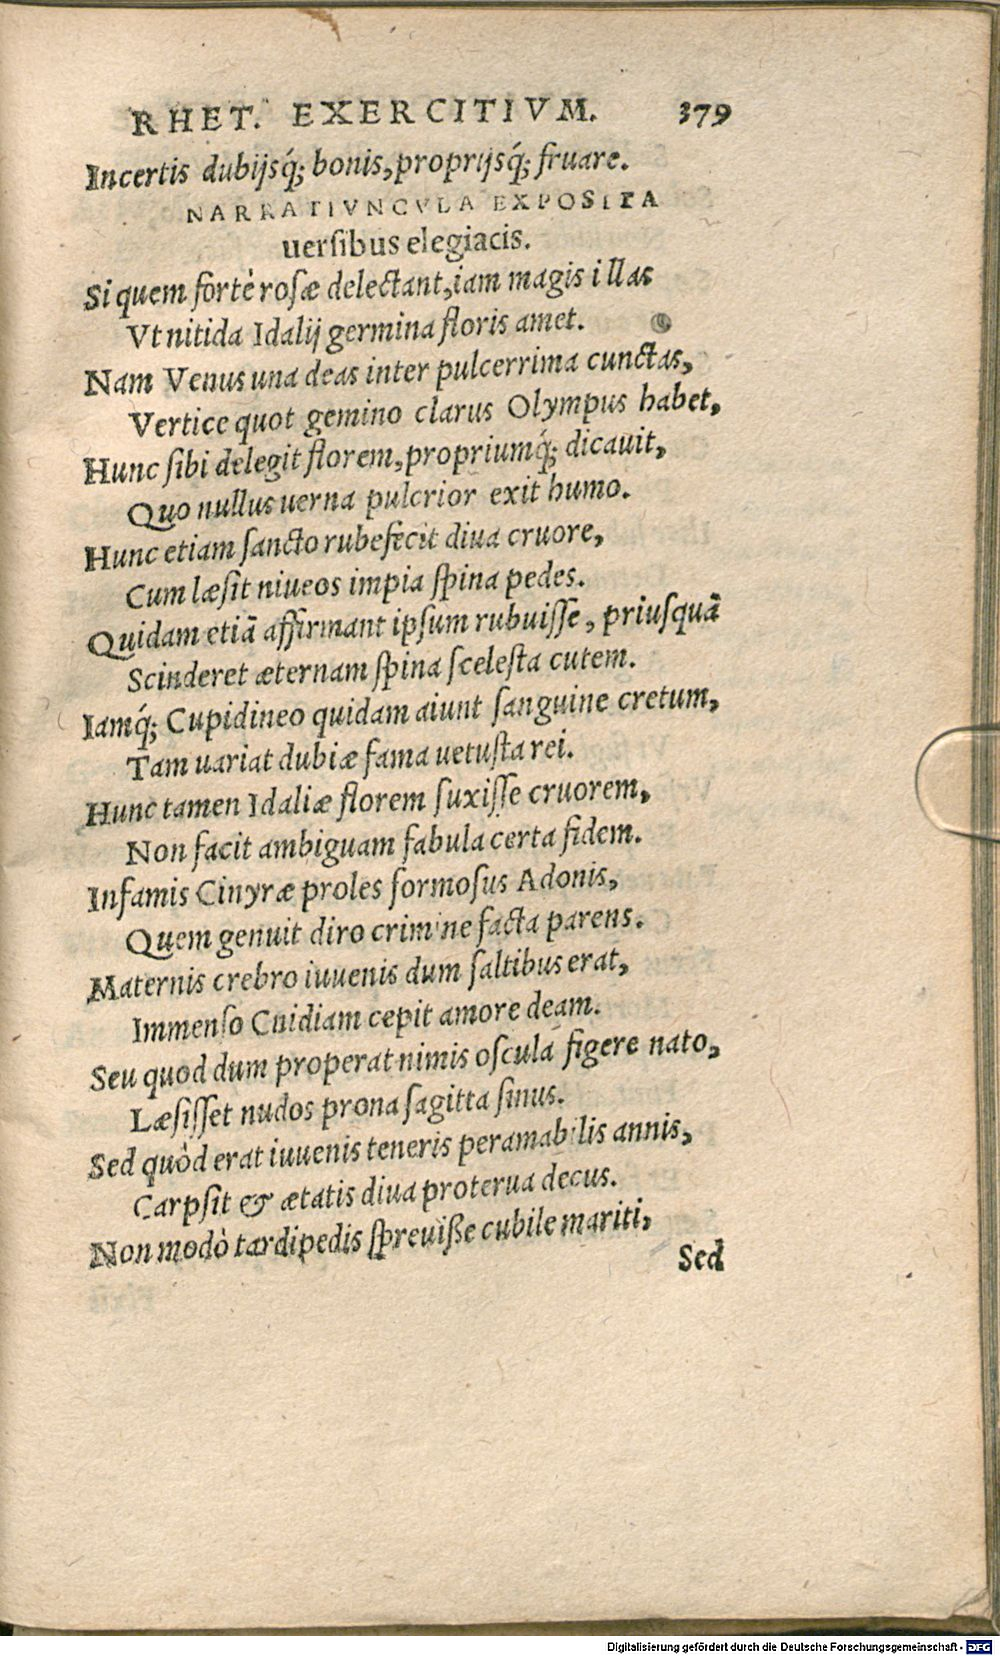 RHET. EXERCITIVM. 379
Incertis dubijsq́; bonis, proprijsq́; fruare.
NARRATIVNCVLA EXPOSITA
uersibus elegiacis.
Si quem fortè rosæ delectant, iam magis illas
Vt nitida Idalij germina floris amet.
Nam Venus una deas inter pulcerrima cunctas,
Vertice quot gemino clarus Olympus habet,
Hunc sibi delegit florem, propriumq́; dicauit,
Quo nullus uerna pulcrior exit humo.
Hunc etiam sancto rubefecit diua cruore,
Cum læsit niueos impia spina pedes.
Quidam etiā affirmant ipsum rubuisse, priusquā
Scinderet æternam spina scelesta cutem.
Iamq́; Cupidineo quidam aiunt sanguine cretum,
Tam uariat dubiæ fama uetusta rei.
Hunc tamen Idaliæ florem suxisse cruorem,
Non facit ambiguam fabula certa fidem.
Infamis Cinyræ proles formosus Adonis,
Quem genuit diro crimine facta parens.
Maternis crebro iuuenis dum saltibus erat,
Immenso Cnidiam cepit amore deam.
Seu quod dum properat nimis oscula figere nato,
Læsisset nudos prona sagitta sinus.
Sed quòd erat iuuenis teneris peramabilis annis,
Carpsit & ætatis diua proterua decus.
Non modò tardipedis spreuisse cubile mariti,
Sed
Digitalisierung gefördert durch die Deutsche Forschungsgemeinschaft - DFG